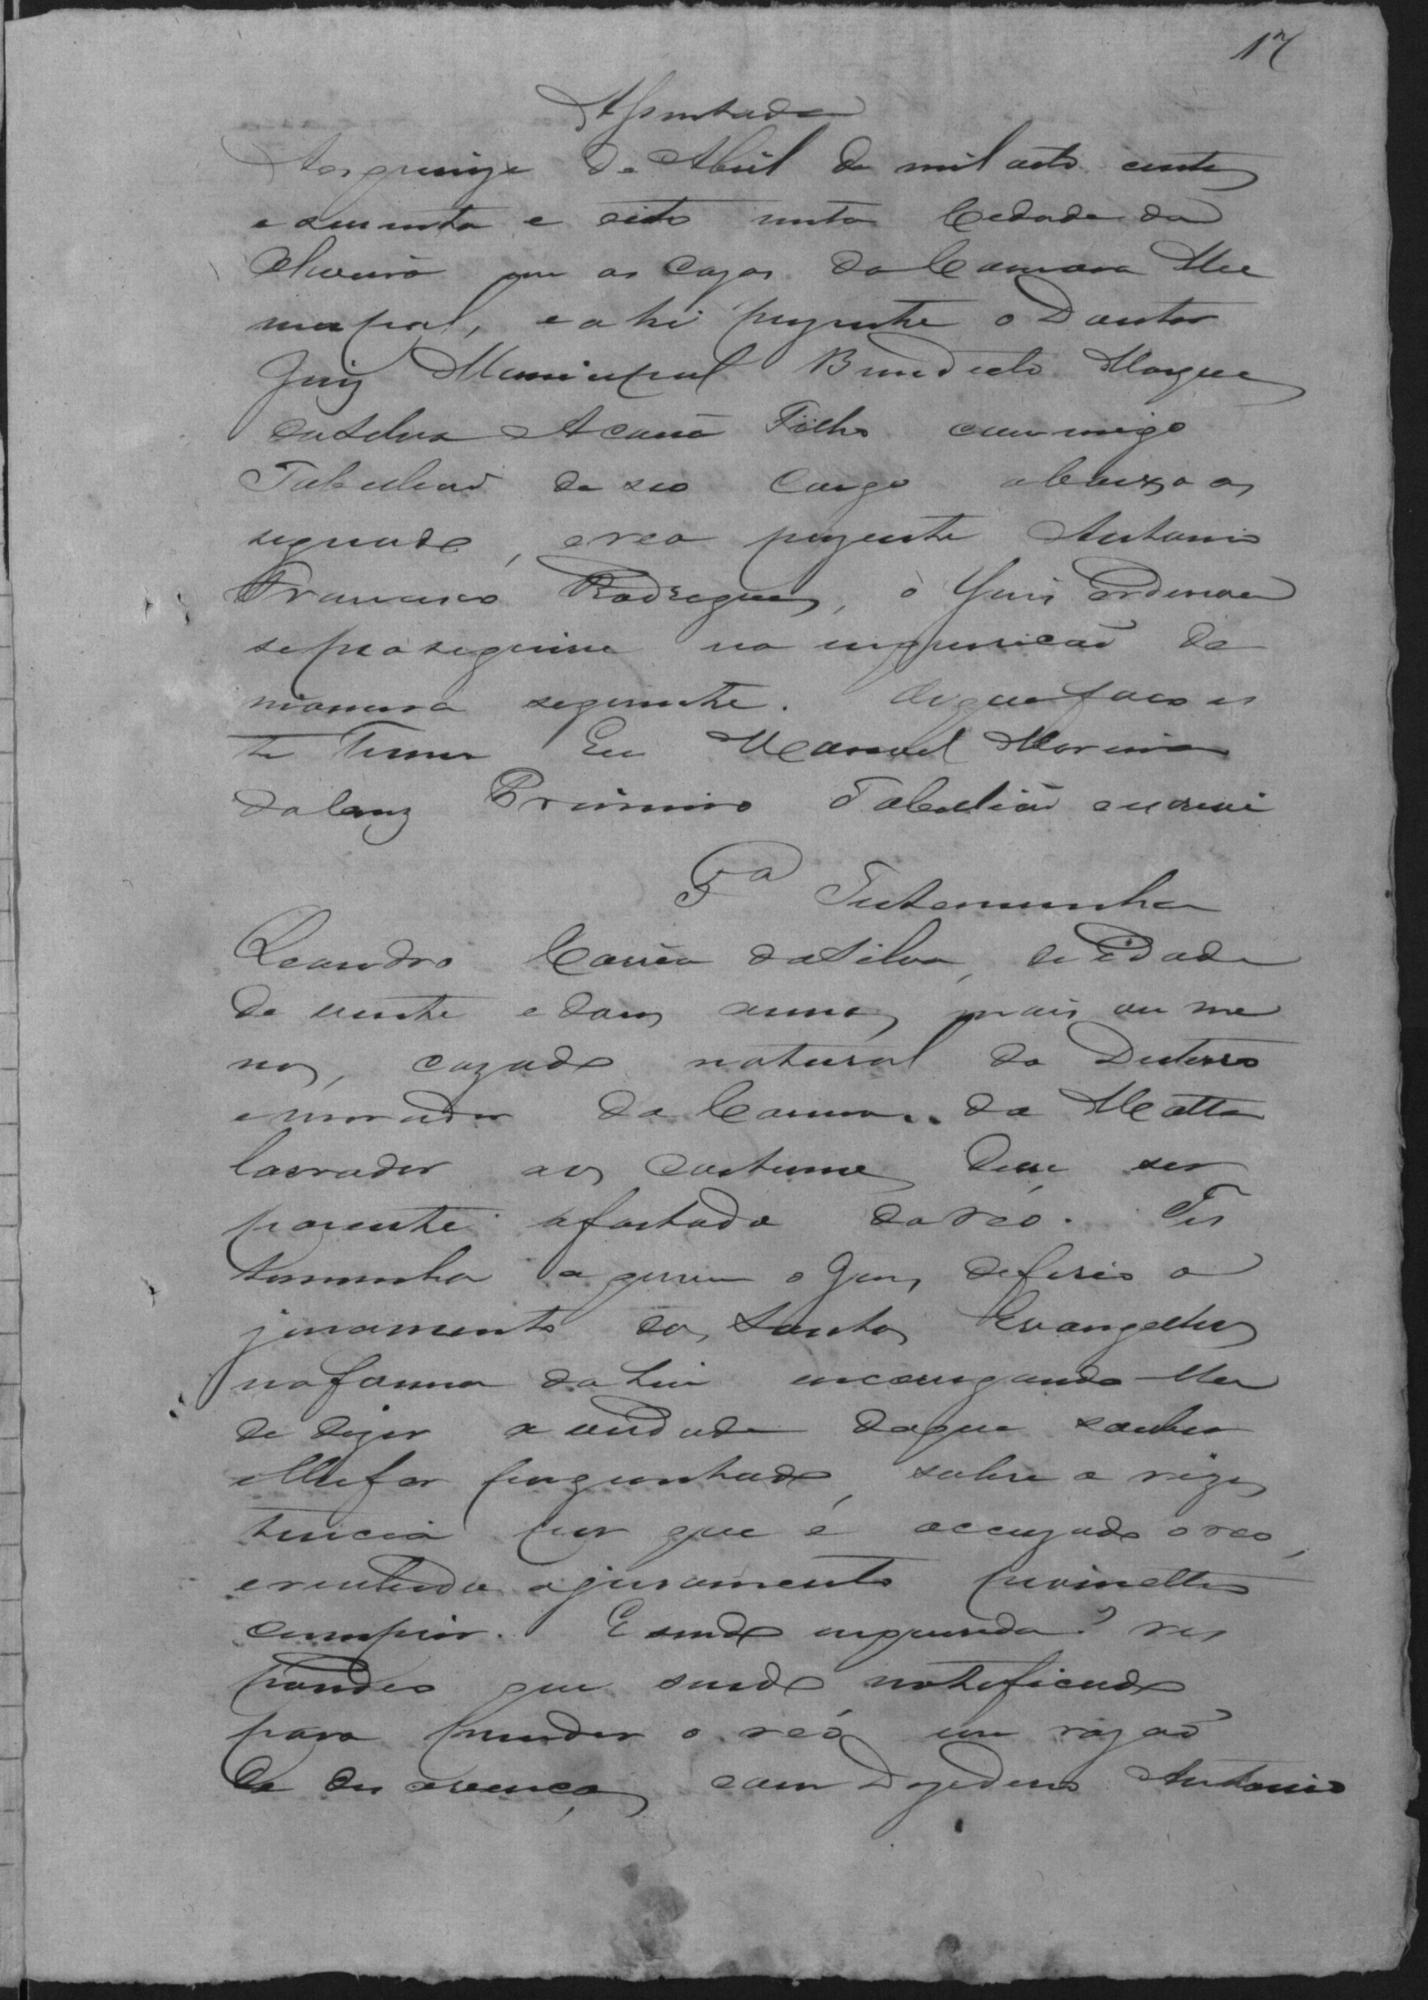 17
Assentada
Aos quinze de Abril de mil oito centos
e secenta e oito nesta Cedade da
Oliveira em as Cazas da Camara Mu
nicipal, e ahi prezente o Doutor
Juiz Municipal Bendicto Marques
da Silva Acauã Filho commigo
Tabelliaõ de seo Cargo abaixo as
signado, e reo prezente Antonio
Francisco Rodrigues, o Juiz Ordenou
se proseguisse na inquiricaõ da
maneira seguinte. De que faco es
te Termo Eu Manoel Moreira
da Cruz Primeiro Tabeliaõ escrevi
5ª Testemunha
Leandro Corrêa da Silva, de idade
de vinte e dous annos mais ou me
nos, cazado natural do Desterro
e morador da da Matta
lavrador aos costumes disse ser
parente afastado do reo. Tes
temunha a quem o Juiz deferio o
juramento dos Santos Evangelhos
na forma da Lei encarregando-lhe
de dizer a verdade do que souber
e lhe for perguntado, sobre a rezis
tencia por que é accuzado o reo,
e recebido o juramento prometteo
cumprir. E sendo inquerida res
pondeo que sendo notificado
para prender o reo em razaõ
de dezavenças com Antonio